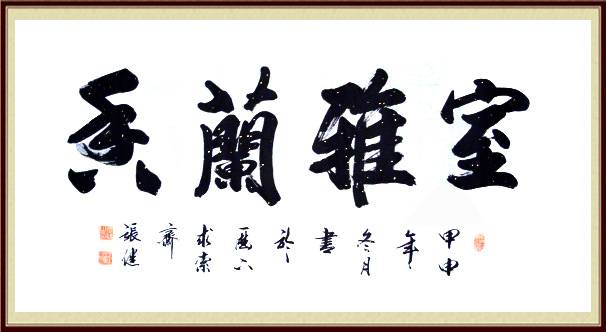 室雅蘭香
甲申年冬月書於歷下求索齋張健